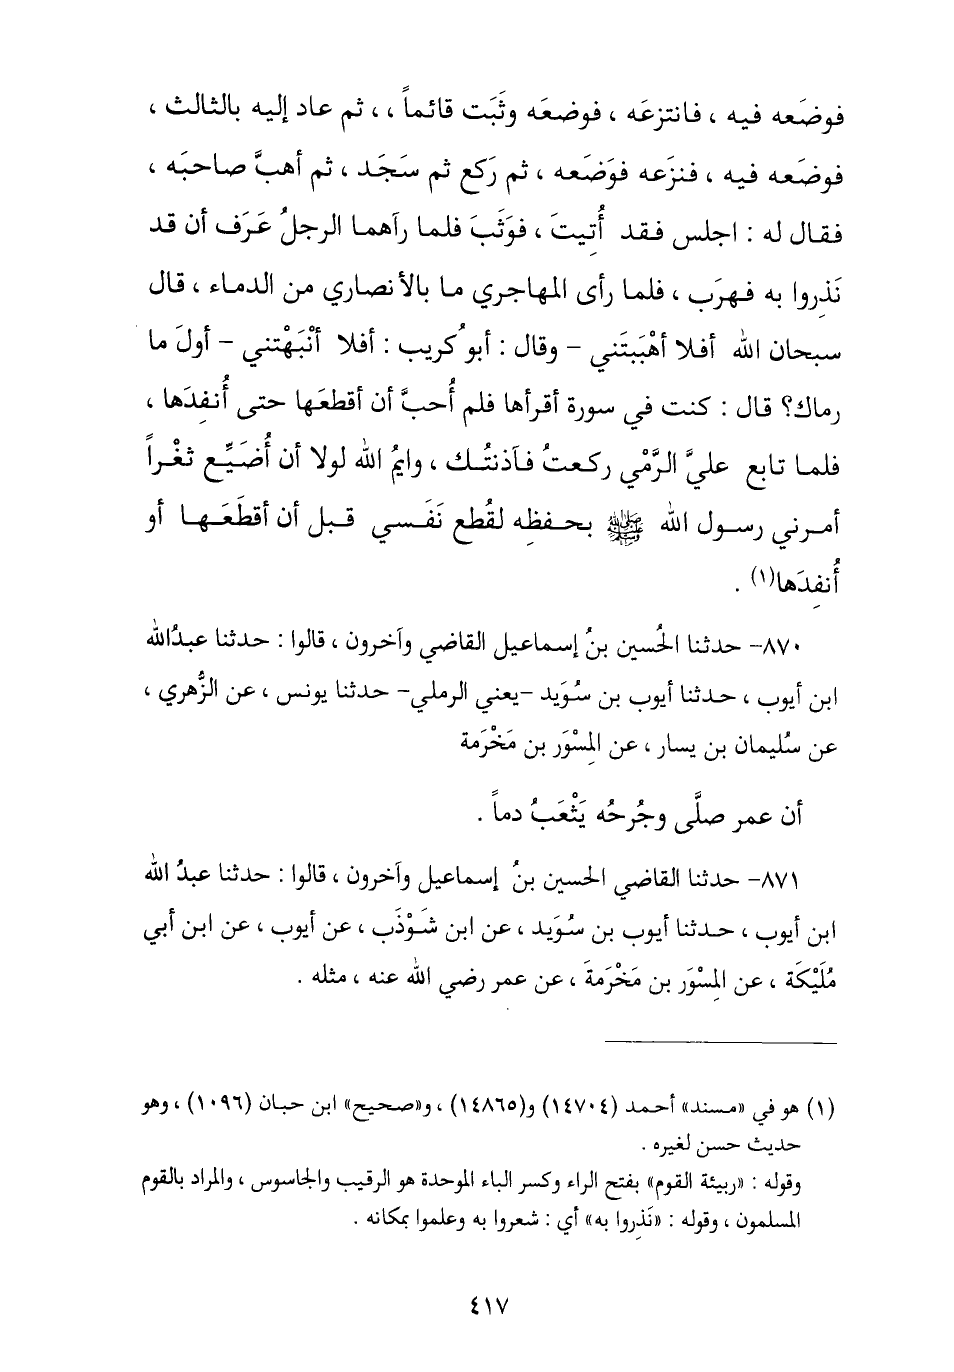 فوضَعه فيه ، فانتزعَه ، فوضعَه وثَبَت قائماً ، ، ثم عاد إليه بالثالث ،
فوضعه فيه ، فنزَعه فوَضعَه ، ثم رَكع ثم سَجَد ، ثم أهبَّ صاحبَه ،
فقال له : اجلس فقد أُتِيتَ ، فوَثَبَ فلما رآهما الرجلُ عَرَف أن قد
نَذِروا به فهرَب ، فلما رأى المهاجري ما بالأنصاري من الدماء ، قال
سبحان الله أفلا أهْبَبتَني – وقال : أبو كُريب : أفلا أنْبَهْتني – أولَ ما
رماك؟ قال : كنت في سورة أقرأها فلم أُحبَّ أن أقطعَها حتى أُنفِدَها ،
فلما تابع عليَّ الرَّمْي ركعتُ فآذنتُك ، وايمُ الله لولا أن أُضَيِّع ثغْراً
أمرني رسول الله ﷺ بحفظِه لقُطع نَفَسي قبل أن أقطَعَها أو
أُنفِدَها(١) .
٨٧٠– حدثنا الحُسين بنُ إسماعيل القاضي وآخرون ، قالوا : حدثنا عبدُالله
ابن أيوب ، حدثنا أيوب بن سُوَيد –يعني الرملي– حدثنا يونس ، عن الزُّهري ،
عن سُليمان بن يسار ، عن المِسْوَر بن مَخْرَمة
أن عمر صلَّى وجُرحُه يَثْعَبُ دماً .
٨٧١– حدثنا القاضي الحسين بنُ إسماعيل وآخرون ، قالوا : حدثنا عبدُ الله
ابن أيوب ، حدثنا أيوب بن سُوَيد ، عن ابن شَوْذَب ، عن أيوب ، عن ابن أبي
مُلَيْكَة ، عن المِسْوَر بن مَخْرَمةَ ، عن عمر رضي الله عنه ، مثله .
(١) هو في «مسند» أحمد (١٤٧٠٤) و(١٤٨٦٥) ، و«صحيح» ابن حبان (١٠٩٦) ، وهو
حديث حسن لغيره .
وقوله : «ربيئة القوم» بفتح الراء وكسر الباء الموحدة هو الرقيب والجاسوس ، والمراد بالقوم
المسلمون ، وقوله : «نَذِروا به» أي : شعروا به وعلموا بمكانه .
٤١٧